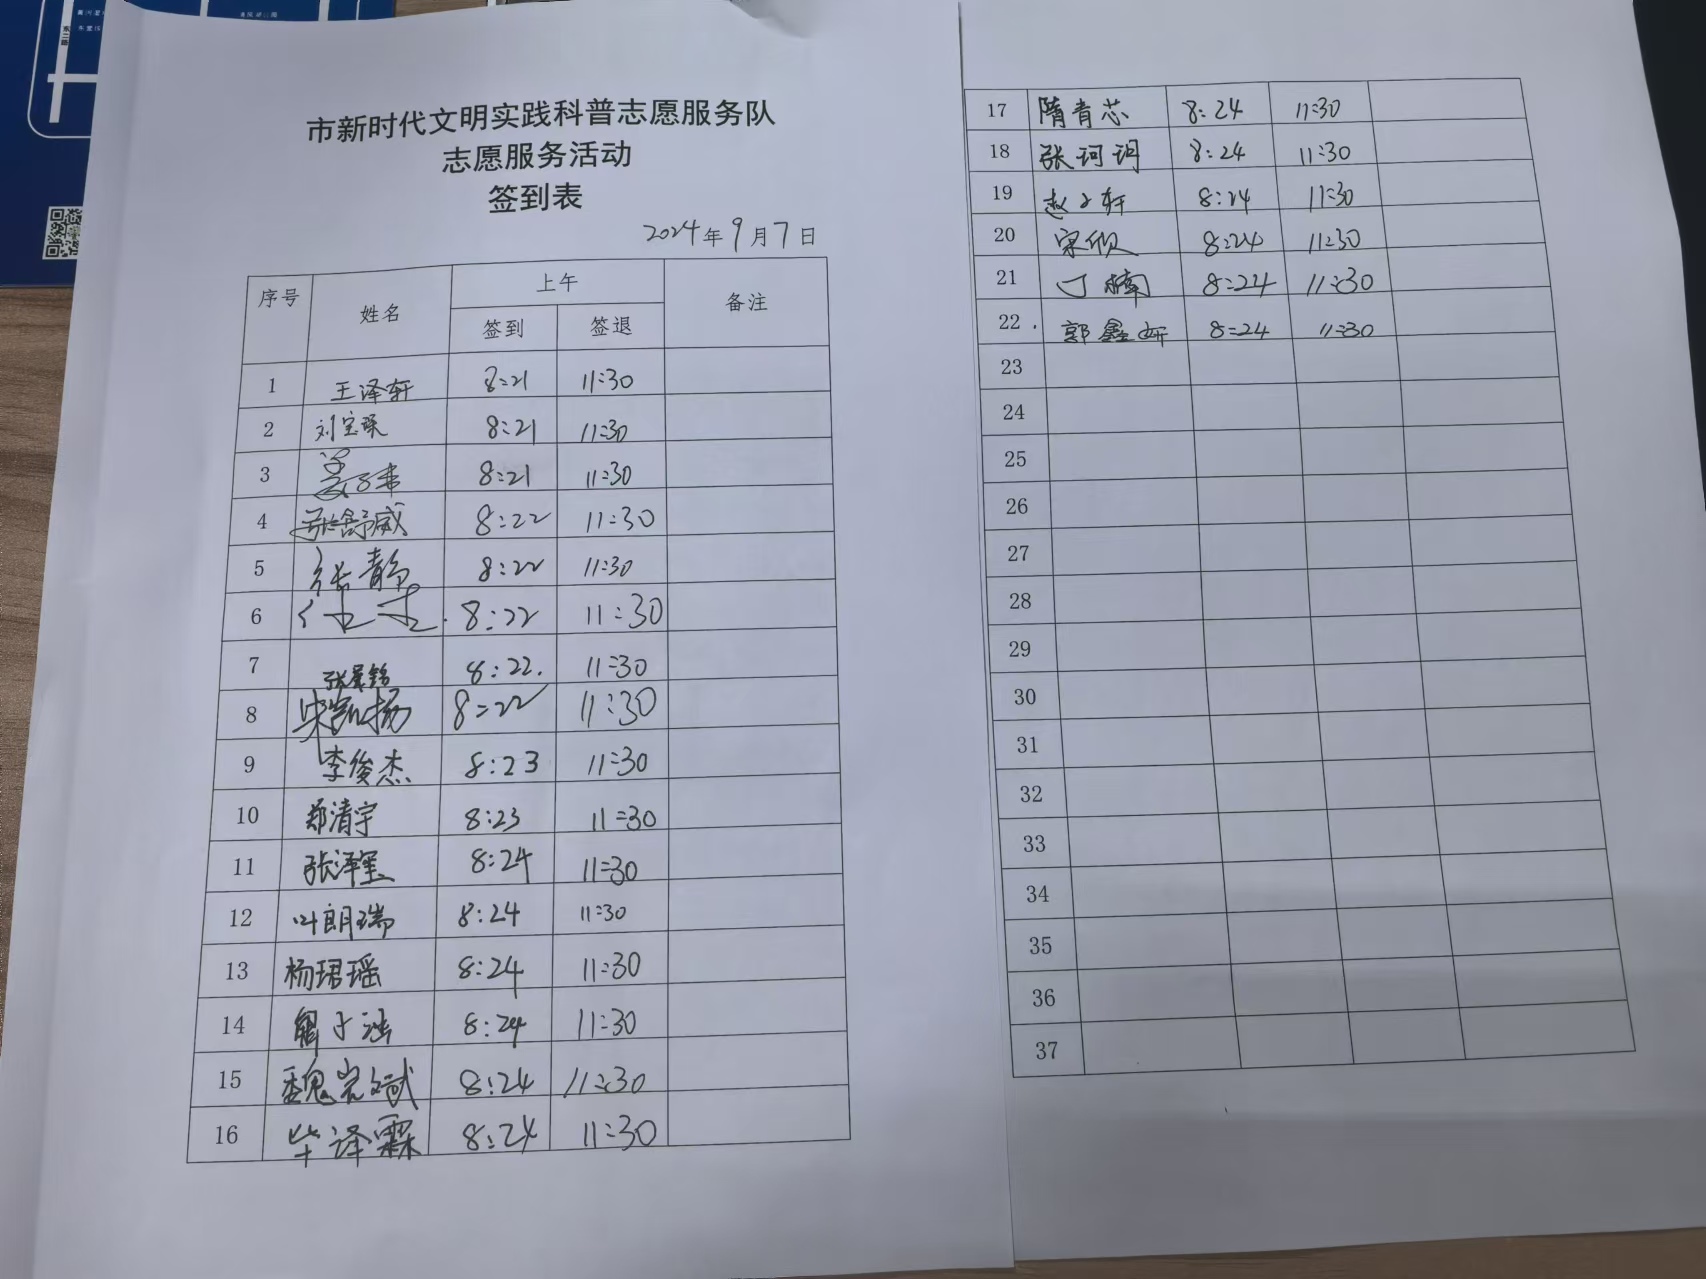 市新时代文明实践科普志愿服务队
志愿服务活动
签到表
2024年9月7日
序号 姓名 上午 备注
签到 签退
1 王泽轩 8:21 11:30
2 刘宝琛 8:21 11:30
3 8:21 11:30
4 张舒威 8:22 11:30
5 张静 8:22 11:30
6 8:22 11:30
7 8:22. 11:30
8 宋凯扬 8:22 11:30
9 李俊杰 8:23 11:30
10 郑清宇 8:23 11:30
11 张泽玺 8:24 11:30
12 叶朗瑞 8:24 11:30
13 杨珺瑶 8:24 11:30
14 8:24 11:30
15 魏 8:24 11:30
16 毕译霖 8:24 11:30
17 隋青芯 8:24 11:30
18 张珂珂 8:24 11:30
19 赵子轩 8:24 11:30
20 宋 8:24 11:30
21 丁楠 8:24 11:30
22 郭鑫妍 8:24 11:30
23
24
25
26
27
28
29
30
31
32
33
34
35
36
37